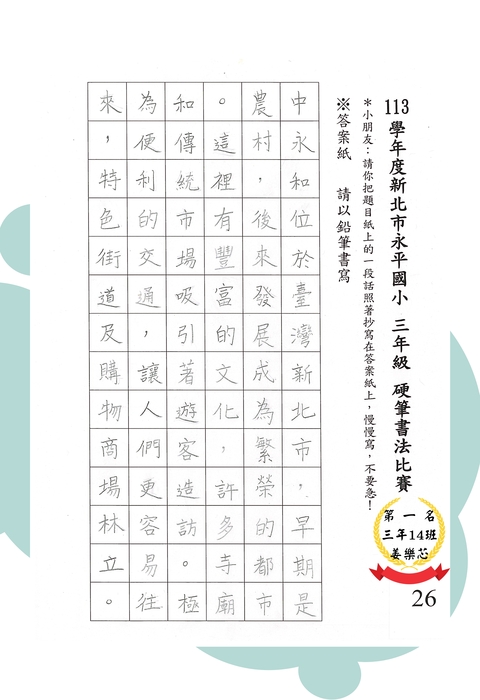 113 學年度新北市永平國小 三年級 硬筆書法比賽
＊小朋友：請你把題目紙上的一段話照著抄寫在答案紙上，慢慢寫，不要急！
※答案紙 請以鉛筆書寫
中永和位於臺灣新北市，早期是
農村，後來發展成為繁榮的都市
。這裡有豐富的文化，許多寺廟
和傳統市場吸引著遊客造訪。極
為便利的交通，讓人們更容易往
來，特色街道及購物商場林立。
第一名
三年14班
姜樂芯
26